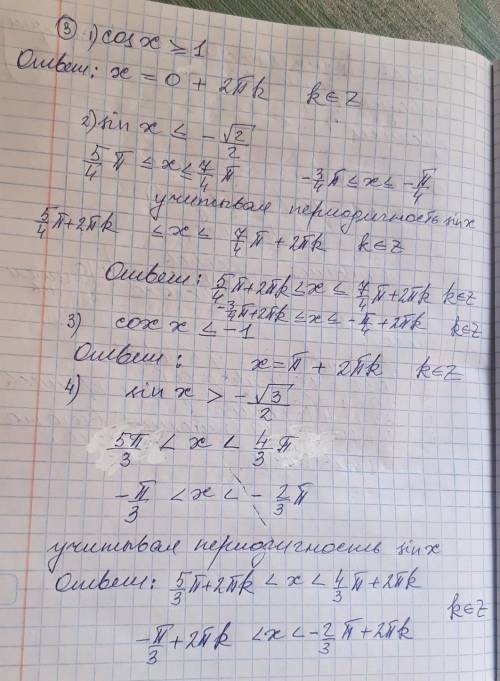 ③ 1) cos x ≥ 1
Ответ: x = 0 + 2πk k∈Z
2) sin x ≤ -√2/2
5/4 π ≤ x ≤ 7/4 π -3/4 π ≤ x ≤ -π/4
учитывая периодичность sin x
5/4 π+2πk ≤ x ≤ 7/4 π + 2πk k∈Z
Ответ: 5/4 π+2πk ≤ x ≤ 7/4 π+2πk k∈Z
-3/4 π+2πk ≤ x ≤ -π/4 + 2πk k∈Z
3) cox x ≤ -1
Ответ: x = π + 2πk k∈Z
4) sin x > -√3/2
5π/3 < x < 4/3 π
-π/3 < x < -2/3 π
учитывая периодичность sin x
Ответ: 5/3 π+2πk < x < 4/3 π+2πk
k∈Z
-π/3 + 2πk < x < -2/3 π + 2πk